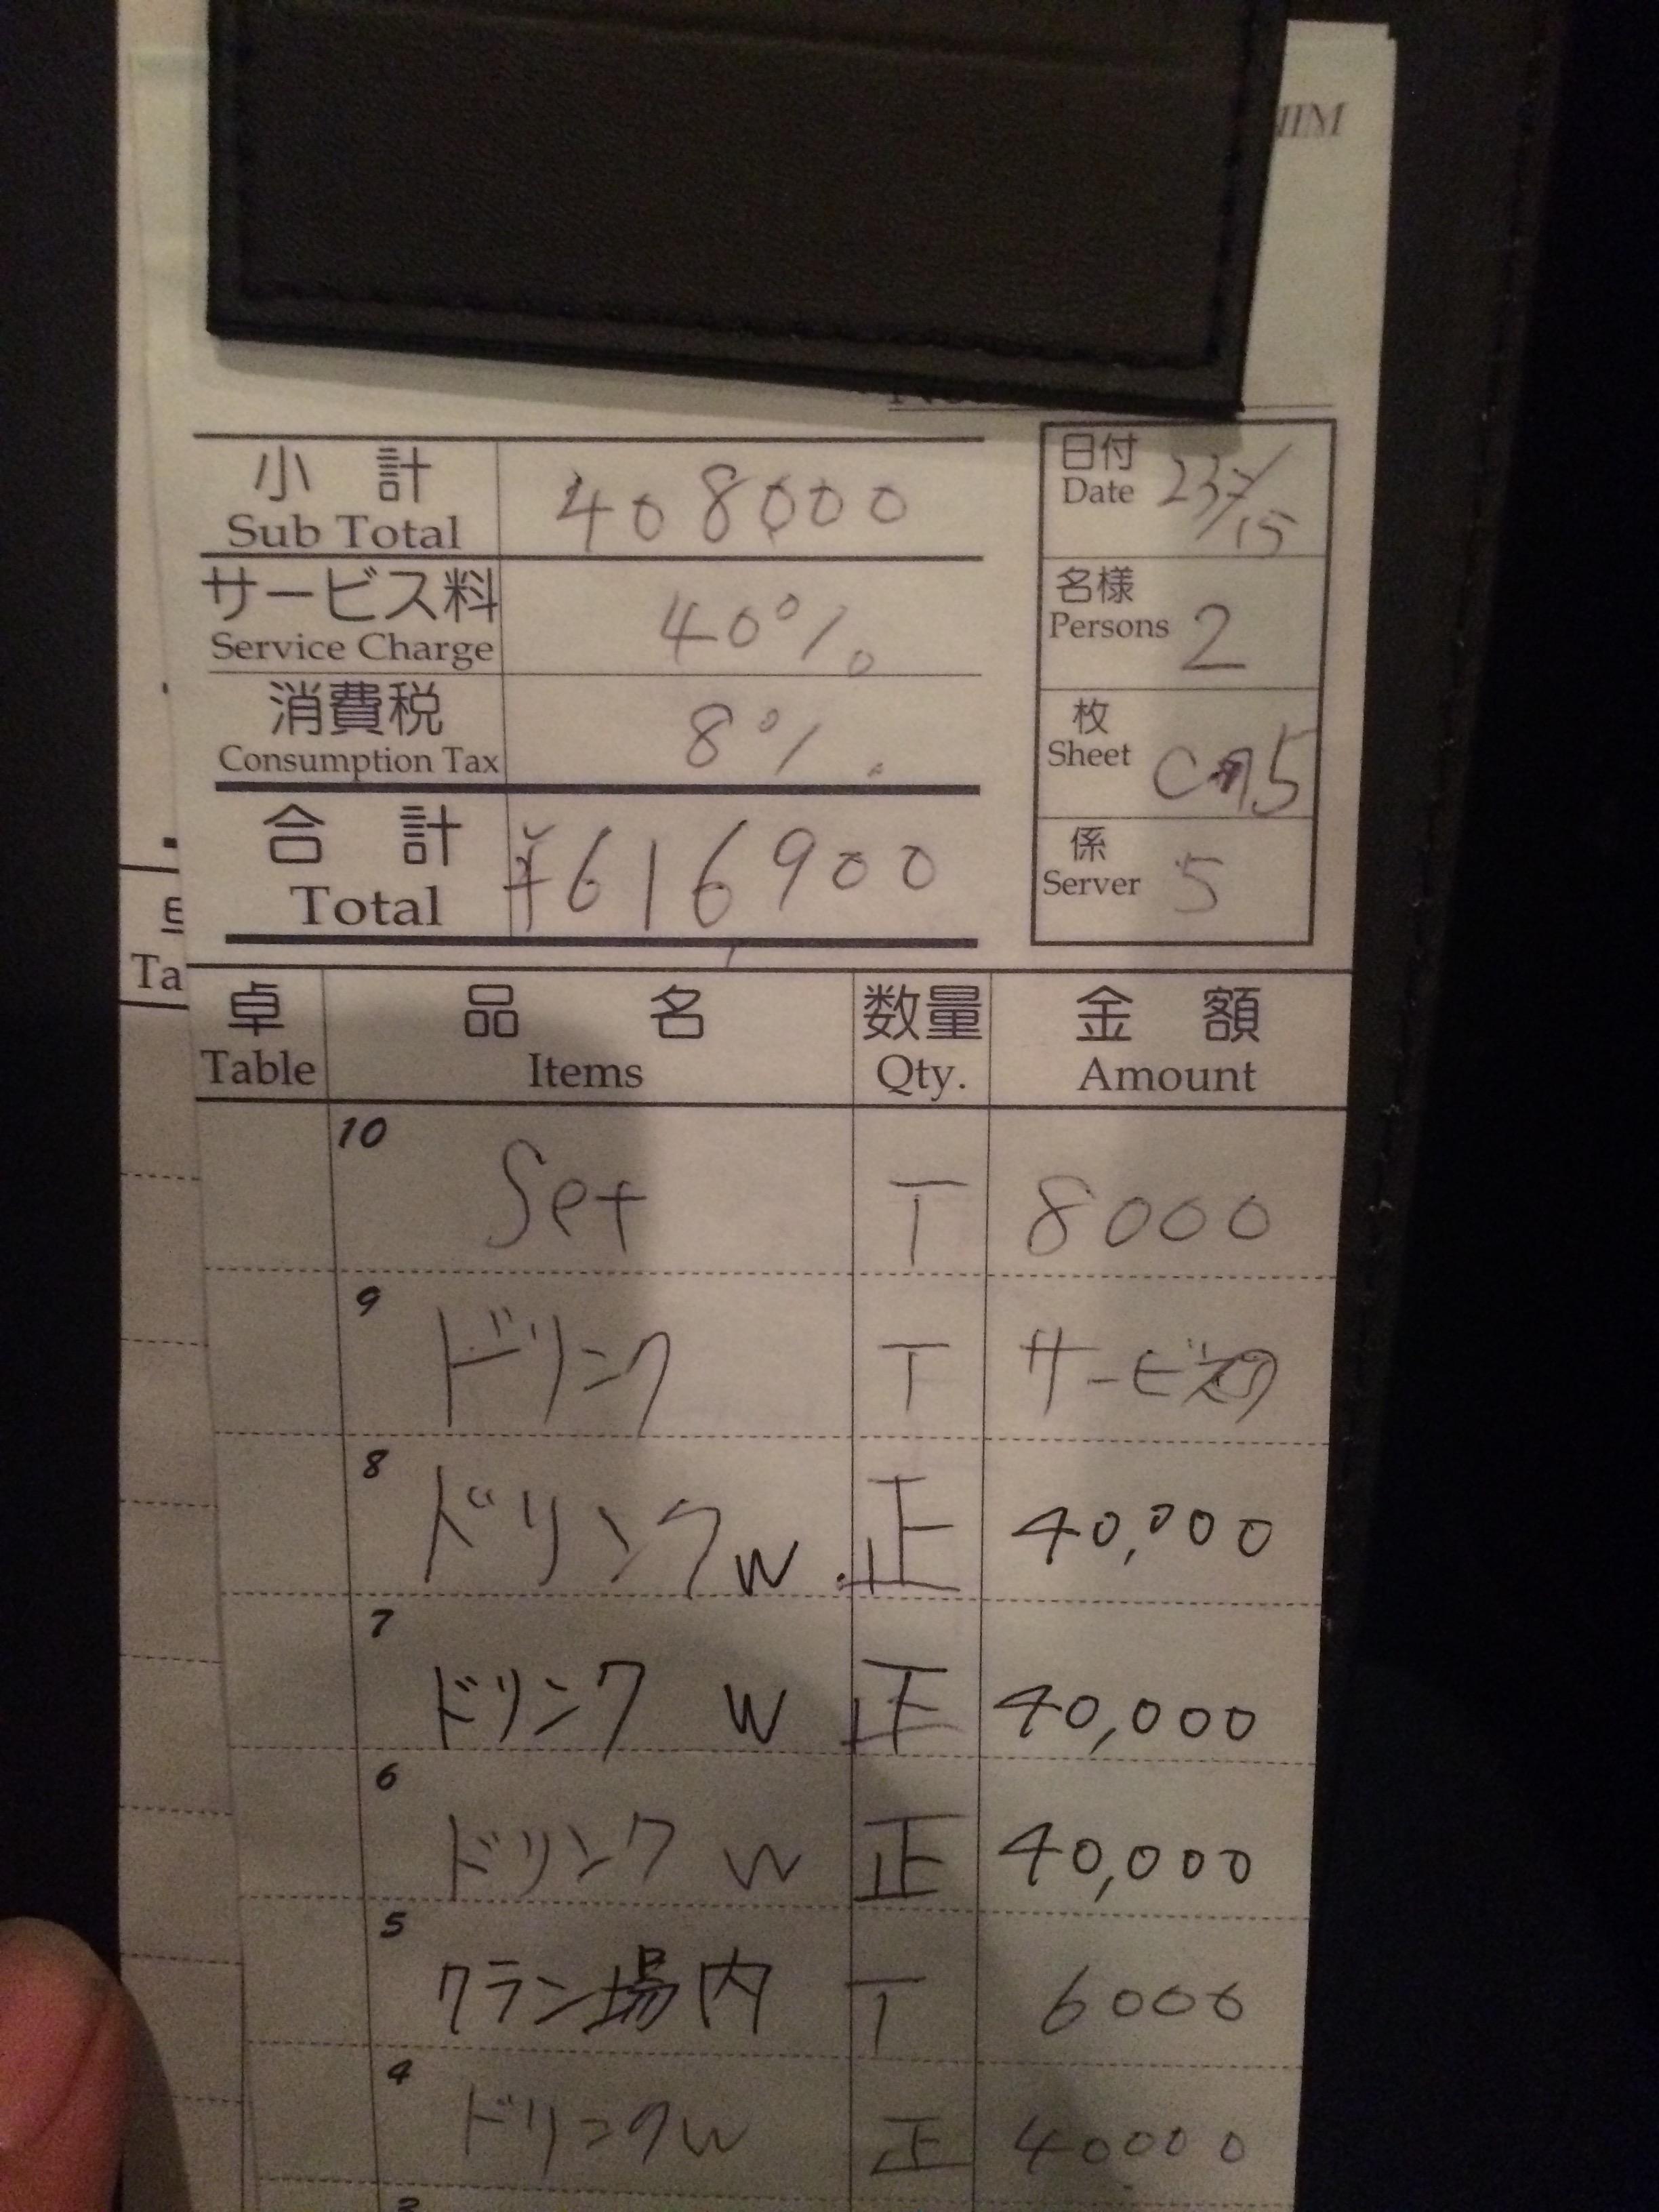 IEM
小計 408000
Sub Total
サービス料 40%
Service Charge
消費税 8%
Consumption Tax
合計 ¥616900
Total
日付
Date
名様 2
Persons
枚
Sheet
係 5
Server
Ta
卓 品名 数量 金額
Table Items Qty. Amount
10 Set T 8000
9 ドリンク T サービス
8 ドリンクW 正 40,000
7 ドリンク W 正 40,000
6 ドリンク W 正 40,000
5 クラン場内 T 6000
4 ドリンクW 正 40000
3